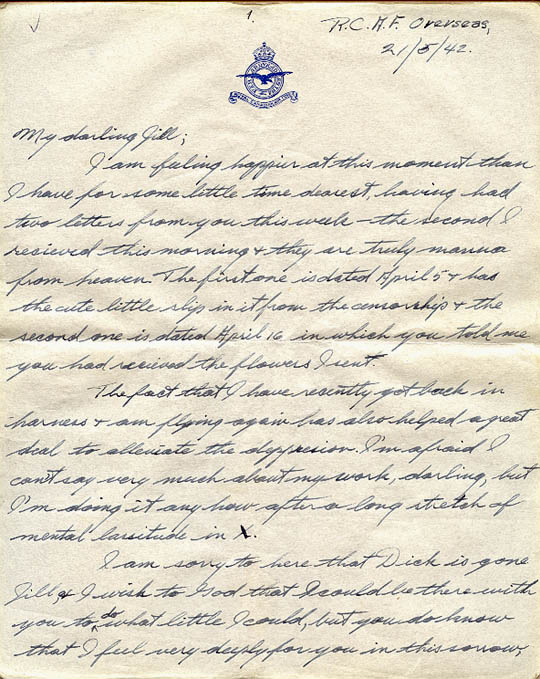 1.
R.C.A.F. Overseas,
21/5/42.
My darling Jill;
I am feeling happier at this moment than
I have for some little time dearest, having had
two letters from you this week - the second I
recieved this morning & they are truly manna
from heaven. The first one is dated April 5 & has
the cute little slip in it from the censorship & the
second one is dated April 16 in which you told me
you had recieved the flowers I sent.
The fact that I have recently got back in
harness & am flying again has also helped a great
deal to alleviate the depression. I'm afraid I
can't say very much about my work, darling, but
I'm doing it any how after a long stretch of
mental lassitude in X.
I am sorry to here that Dick is gone
Jill, & I wish to God that I could be there with
you to do what little I could, but you do know
that I feel very deeply for you in this sorrow,